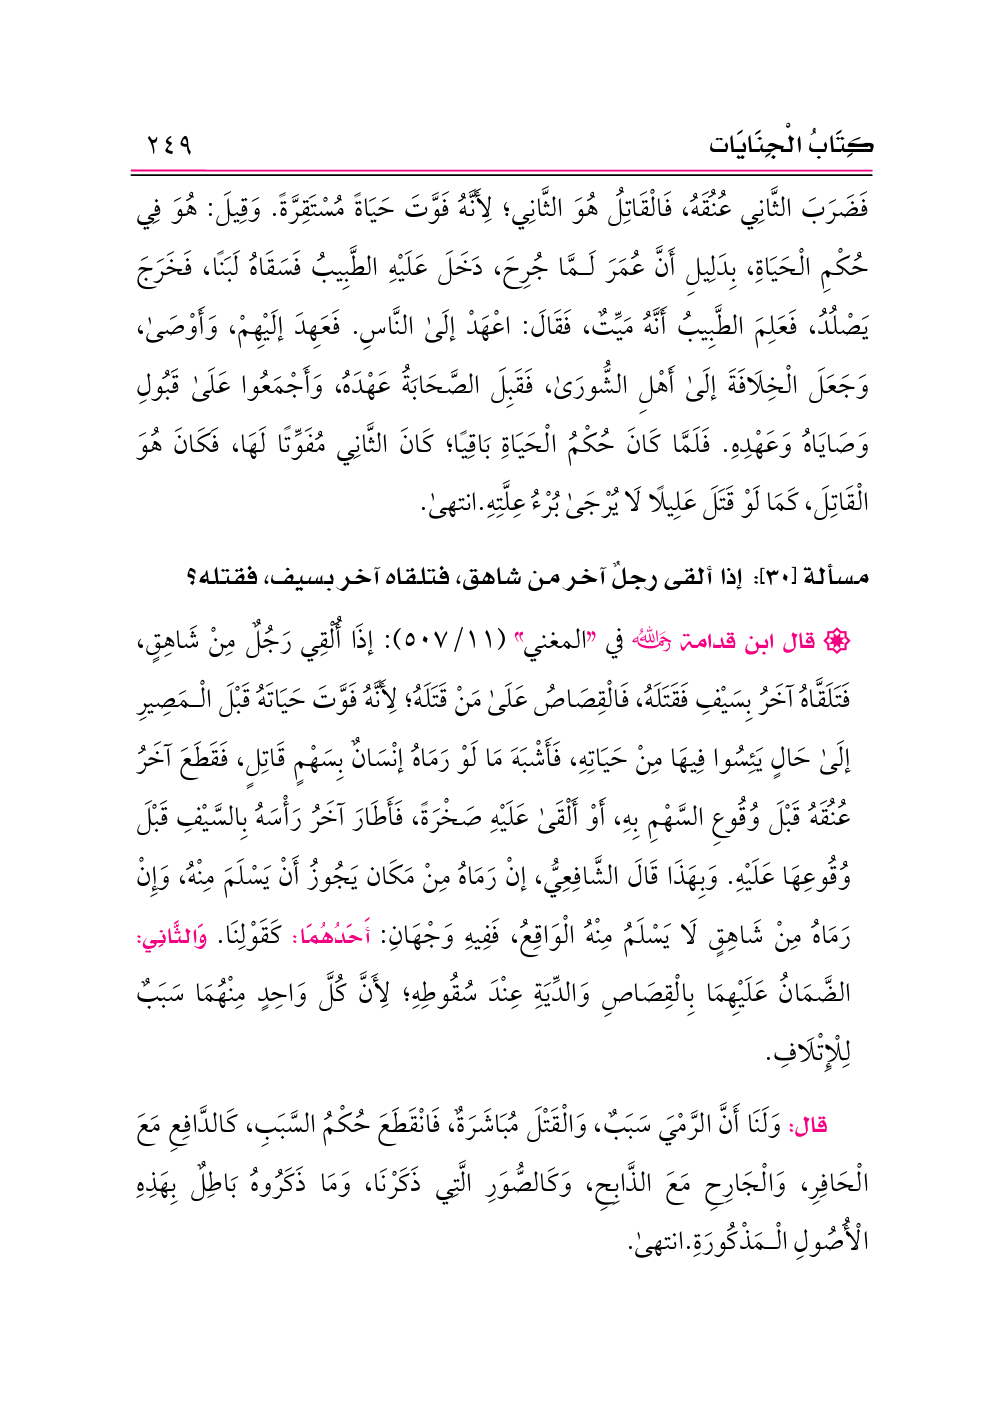 كِتَابُ الْجِنَايَات ٢٤٩
فَضَرَبَ الثَّانِي عُنُقَهُ، فَالْقَاتِلُ هُوَ الثَّانِي؛ لِأَنَّهُ فَوَّتَ حَيَاةً مُسْتَقِرَّةً. وَقِيلَ: هُوَ فِي
حُكْمِ الْحَيَاةِ، بِدَلِيلِ أَنَّ عُمَرَ لَـمَّا جُرِحَ، دَخَلَ عَلَيْهِ الطَّبِيبُ فَسَقَاهُ لَبَنًا، فَخَرَجَ
يَصْلُدُ، فَعَلِمَ الطَّبِيبُ أَنَّهُ مَيِّتٌ، فَقَالَ: اعْهَدْ إلَىٰ النَّاسِ. فَعَهِدَ إلَيْهِمْ، وَأَوْصَىٰ،
وَجَعَلَ الْخِلَافَةَ إلَىٰ أَهْلِ الشُّورَىٰ، فَقَبِلَ الصَّحَابَةُ عَهْدَهُ، وَأَجْمَعُوا عَلَىٰ قَبُولِ
وَصَايَاهُ وَعَهْدِهِ. فَلَمَّا كَانَ حُكْمُ الْحَيَاةِ بَاقِيًا؛ كَانَ الثَّانِي مُفَوِّتًا لَهَا، فَكَانَ هُوَ
الْقَاتِلَ، كَمَا لَوْ قَتَلَ عَلِيلًا لَا يُرْجَىٰ بُرْءُ عِلَّتِهِ.انتهىٰ.
مسألة [٣٠]: إذا ألقى رجلٌ آخر من شاهق، فتلقاه آخر بسيف، فقتله؟
قال ابن قدامة رَحِمَهُ اللَّهُ في "المغني" (١١/ ٥٠٧): إذَا أُلْقِي رَجُلٌ مِنْ شَاهِقٍ،
فَتَلَقَّاهُ آخَرُ بِسَيْفٍ فَقَتَلَهُ، فَالْقِصَاصُ عَلَىٰ مَنْ قَتَلَهُ؛ لِأَنَّهُ فَوَّتَ حَيَاتَهُ قَبْلَ الْـمَصِيرِ
إلَىٰ حَالٍ يَئِسُوا فِيهَا مِنْ حَيَاتِهِ، فَأَشْبَهَ مَا لَوْ رَمَاهُ إنْسَانٌ بِسَهْمٍ قَاتِلٍ، فَقَطَعَ آخَرُ
عُنُقَهُ قَبْلَ وُقُوعِ السَّهْمِ بِهِ، أَوْ أَلْقَىٰ عَلَيْهِ صَخْرَةً، فَأَطَارَ آخَرُ رَأْسَهُ بِالسَّيْفِ قَبْلَ
وُقُوعِهَا عَلَيْهِ. وَبِهَذَا قَالَ الشَّافِعِيُّ، إنْ رَمَاهُ مِنْ مَكَان يَجُوزُ أَنْ يَسْلَمَ مِنْهُ، وَإِنْ
رَمَاهُ مِنْ شَاهِقٍ لَا يَسْلَمُ مِنْهُ الْوَاقِعُ، فَفِيهِ وَجْهَانِ: أَحَدُهُمَا: كَقَوْلِنَا. وَالثَّانِي:
الضَّمَانُ عَلَيْهِمَا بِالْقِصَاصِ وَالدِّيَةِ عِنْدَ سُقُوطِهِ؛ لِأَنَّ كُلَّ وَاحِدٍ مِنْهُمَا سَبَبٌ
لِلْإِتْلَافِ.
قال: وَلَنَا أَنَّ الرَّمْيَ سَبَبٌ، وَالْقَتْلَ مُبَاشَرَةٌ، فَانْقَطَعَ حُكْمُ السَّبَبِ، كَالدَّافِعِ مَعَ
الْحَافِرِ، وَالْجَارِحِ مَعَ الذَّابِحِ، وَكَالصُّوَرِ الَّتِي ذَكَرْنَا، وَمَا ذَكَرُوهُ بَاطِلٌ بِهَذِهِ
الْأُصُولِ الْـمَذْكُورَةِ.انتهىٰ.